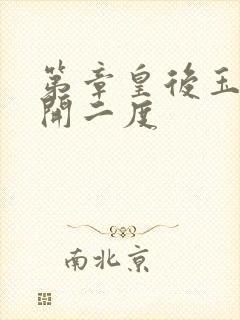 第章皇後玉
開二度
南北京